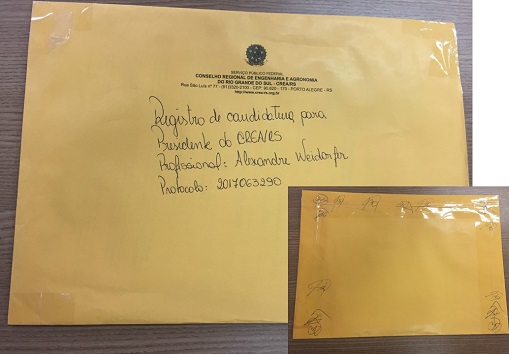 SERVIÇO PÚBLICO FEDERAL
CONSELHO REGIONAL DE ENGENHARIA E AGRONOMIA
DO RIO GRANDE DO SUL - CREA/RS
Rua São Luís nº 77 - (51)3320-2100 - CEP: 90.620 - 170 - PORTO ALEGRE - RS
http://www.crea-rs.org.br
Registro de candidatura para
Presidente do CREA/RS
Profissional: Alexandre
Protocolo: 2017063290